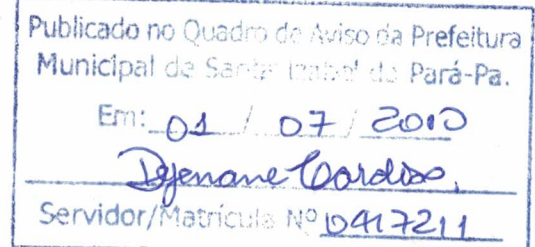 Publicado no Quadro de Aviso da Prefeitura
Municipal de Santa Izabel do Pará-Pa.
Em: 01 / 07 / 2010
Djenane Cardoso.
Servidor/Matrícula Nº 0417211